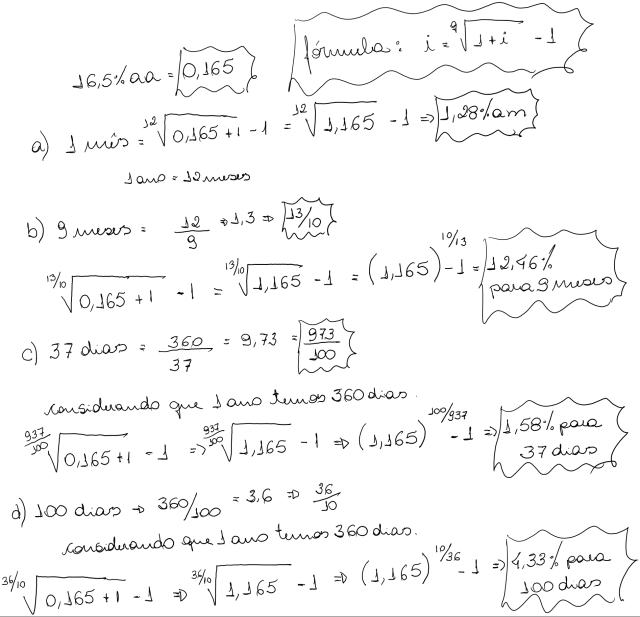 16,5% aa = 0,165
fórmula: i = ⁹√1+i - 1
a) 1 mês = ¹²√0,165+1 - 1 = ¹²√1,165 - 1 ⇒ 1,28% am
1 ano = 12 meses
b) 9 meses = 12/9 ⇒ 1,3 ⇒ 13/10
¹³/¹⁰√0,165+1 - 1 = ¹³/¹⁰√1,165 - 1 = (1,165)^10/13 - 1 = 12,46% para 9 meses
c) 37 dias = 360/37 = 9,73 = 973/100
considerando que 1 ano temos 360 dias.
⁹³⁷/¹⁰⁰√0,165+1 - 1 => ⁹³⁷/¹⁰⁰√1,165 - 1 ⇒ (1,165)^100/937 - 1 ⇒ 1,58% para 37 dias
d) 100 dias → 360/100 = 3,6 ⇒ 36/10
considerando que 1 ano temos 360 dias.
³⁶/¹⁰√0,165+1 - 1 ⇒ ³⁶/¹⁰√1,165 - 1 ⇒ (1,165)^10/36 - 1 ⇒ 4,33% para 100 dias